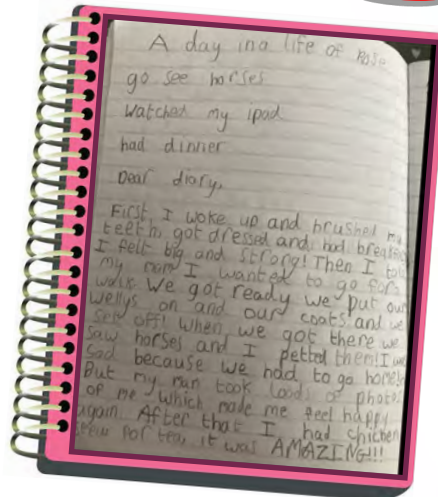 A day in a life of Rose
go see horses
Watched my ipad
had dinner
Dear diary,
First, I woke up and brushed my
teeth, got dressed and had breakfast
I felt big and strong! Then I told
my nan I wanted to go for a
walk. We got ready we put our
wellys on and our coats and we
set off! When we got there we
saw horses and I petted them! I was
sad because we had to go home
But my nan took loads of photos
of me which made me feel happy
again. After that I had chicken
for tea, it was AMAZING!!!